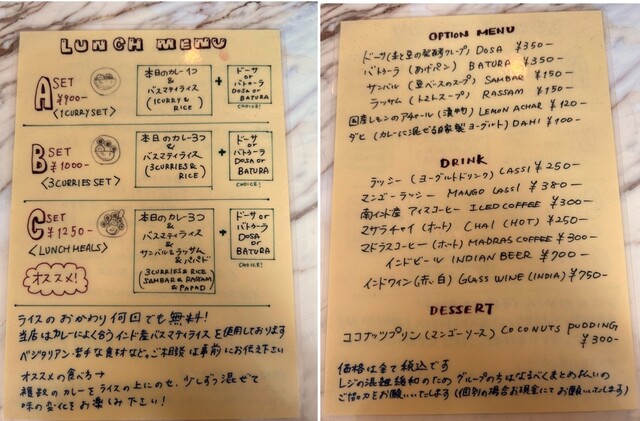 LUNCH MENU
A SET
¥900-
<1CURRY SET>
本日のカレー1つ
&
バスマティライス
(1CURRY & RICE)
+
ドーサ or バトゥーラ
DOSA or BATURA
CHOICE!
B SET
¥1000-
<3CURRIES SET>
本日のカレー3つ
&
バスマティライス
(3CURRIES & RICE)
+
ドーサ or バトゥーラ
DOSA or BATURA
CHOICE!
C SET
¥1250-
<LUNCH MEALS>
オススメ!
本日のカレー3つ
&
バスマティライス
&
サンバルとラッサム
&パパド
(3CURRIES & RICE
SAMBAR & RASSAM
& PAPAD)
+
ドーサ or バトゥーラ
DOSA or BATURA
CHOICE!
ライスのおかわり何回でも無料!
当店はカレーによく合うインド産バスマティライスを使用しております
ベジタリアン・苦手な食材など。ご相談は事前にお伝え下さい
オススメの食べ方→
複数のカレーをライスの上にのせ、少しずつ混ぜて
味の変化をお楽しみ下さい!
OPTION MENU
ドーサ(米と豆の発酵クレープ) DOSA ¥350-
バトゥーラ(あげパン) BATURA ¥350-
サンバル(豆ベースのスープ) SAMBAR ¥150-
ラッサム(トマトスープ) RASSAM ¥150-
国産レモンのアチャール(漬物) LEMON ACHAR ¥120
ダヒ(カレーに混ぜる自家製ヨーグルト) DAHI ¥100-
DRINK
ラッシー(ヨーグルトドリンク) LASSI ¥250-
マンゴーラッシー MANGO LASSI ¥380-
南インド産 アイスコーヒー ICED COFFEE ¥300-
マサラチャイ(ホート) CHAI (HOT) ¥250-
マドラスコーヒー(ホート) MADRAS COFFEE ¥300-
インドビール INDIAN BEER ¥700-
インドワイン(赤い白) GLASS WINE (INDIA) ¥750-
DESSERT
ココナッツプリン(マンゴーソース) COCONUTS PUDDING
¥300-
価格は全て税込です
レジの混雑緩和のため グループの方はなるべくまとめ払いの
ご協力をお願いいたします(個別の場合お現金にてお願いいたします)